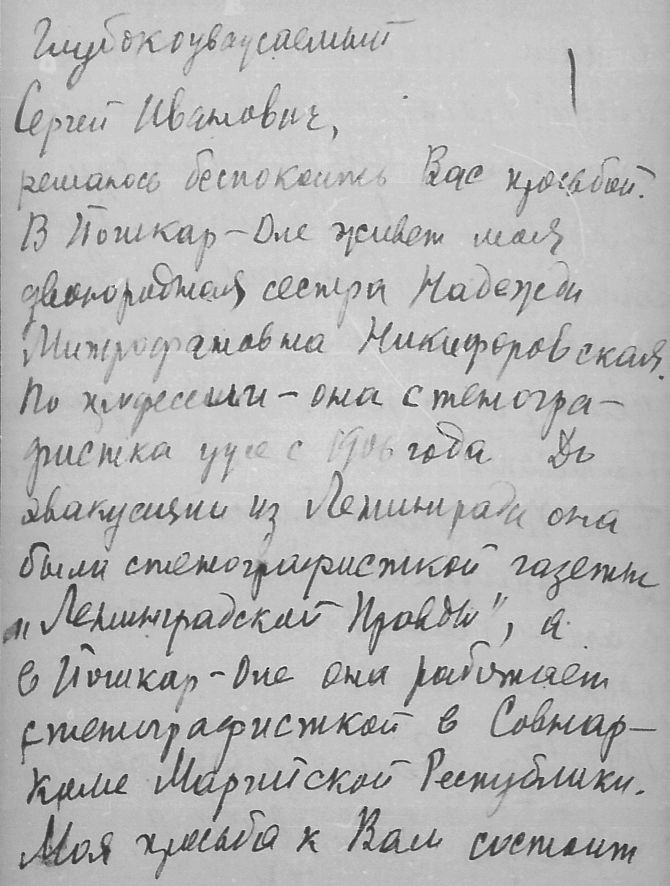 Глубокоуважаемый
Сергей Иванович,
решаюсь беспокоить Вас просьбой.
В Йошкар-Оле живет моя
двоюродная сестра Надежда
Митрофановна Никифоровская.
По профессии – она стеногра-
фистка уже с 1906 года До
эвакуации из Ленинграда она
была стенографисткой газеты
„Ленинградской Правды", а
в Йошкар-Оле она работает
стенографисткой в Совнар-
коме Марийской Республики.
Моя просьба к Вам состоит